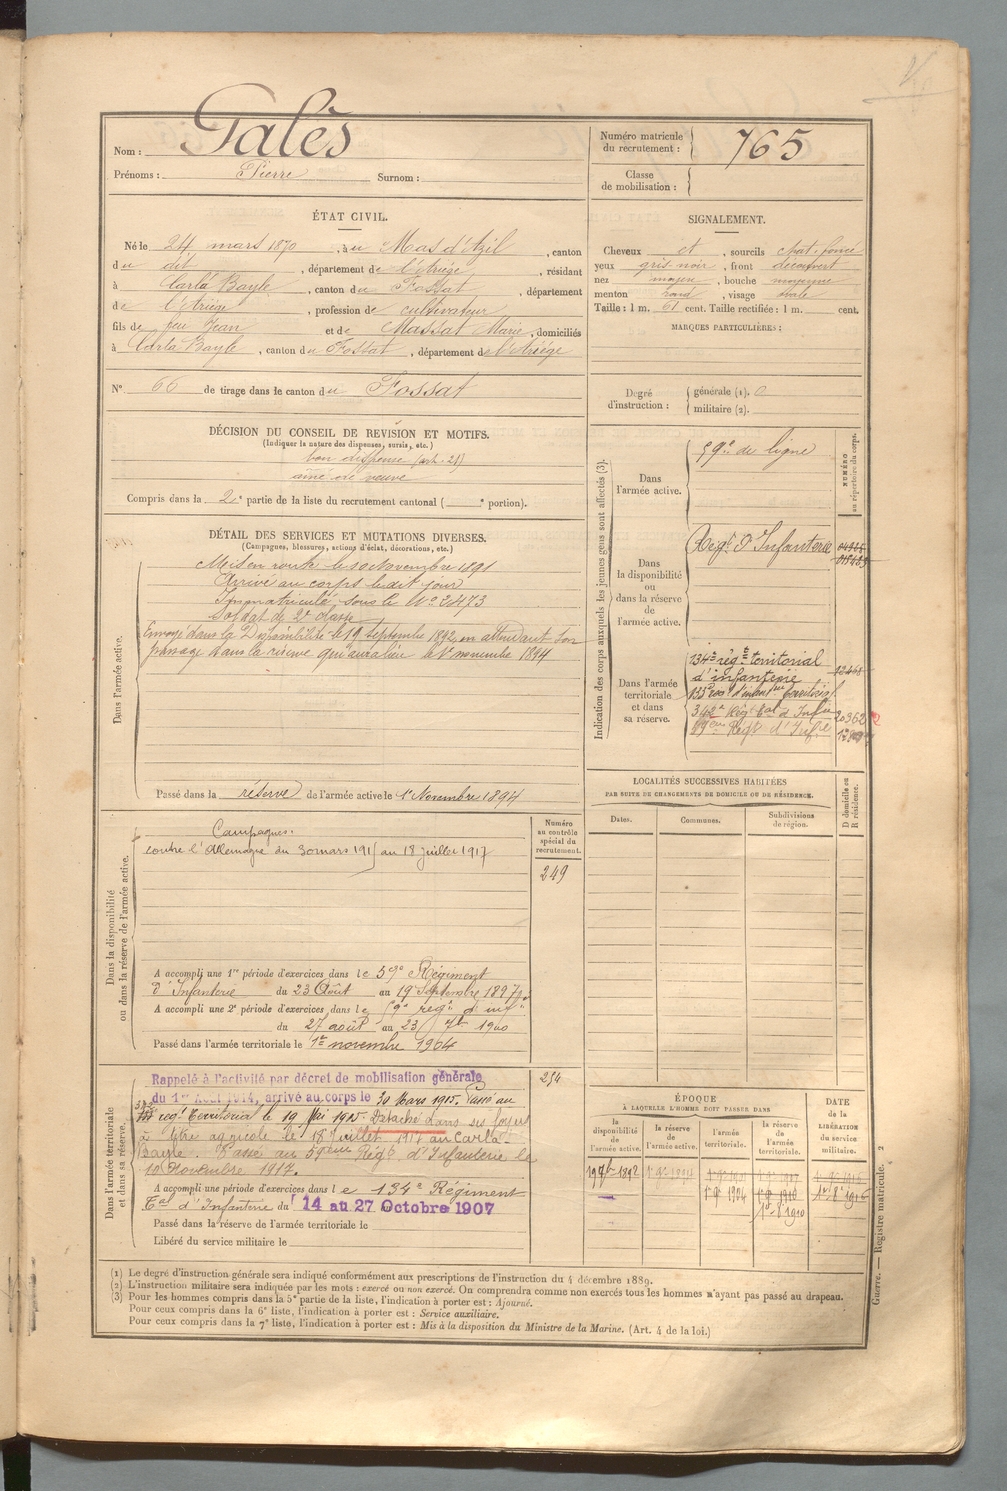 Nom : Galès
Prénoms : Pierre Surnom :
Numéro matricule du recrutement : 765
Classe de mobilisation :
ÉTAT CIVIL.
Né le 24 mars 1870, à u Mas d'Azil, canton
du dit, département de l'Ariège, résidant
à Carla Bayle, canton du Fossat, département
de l'Ariège, profession de cultivateur
fils de feu Jean et de Massat Marie, domiciliés
à Carla Bayle, canton du Fossat, département de l'Ariège
N° 66 de tirage dans le canton du Fossat
SIGNALEMENT.
Cheveux et, sourcils chat. foncé
yeux gris noir, front découvert
nez moyen, bouche moyenne
menton rond, visage ovale
Taille : 1 m. 61 cent. Taille rectifiée : 1 m. cent.
MARQUES PARTICULIÈRES :
Degré d'instruction : générale (1). 0
militaire (2).
DÉCISION DU CONSEIL DE REVISION ET MOTIFS.
(Indiquer la nature des dispenses, sursis, etc.)
bon dispensé (art. 21)
ainé de veuve
Compris dans la 2e partie de la liste du recrutement cantonal ( e portion).
DÉTAIL DES SERVICES ET MUTATIONS DIVERSES.
(Campagnes, blessures, actions d'éclat, décorations, etc.)
Dans l'armée active.
Mis en route le 10 Novembre 1891
Arrivé au corps le dit jour
Immatriculé sous le N° 2473
Soldat de 2e classe
Envoyé dans la Disponibilité le 19 Septembre 1892 en attendant son
passage dans la réserve qui aura lieu le 1er novembre 1894
Passé dans la réserve de l'armée active le 1er Novembre 1894
Indication des corps auxquels les jeunes gens sont affectés (3).
NUMÉRO au répertoire du corps.
Dans l'armée active.
59e de ligne
Dans la disponibilité ou dans la réserve de l'armée active.
Régt d'Infanterie
Dans l'armée territoriale et dans sa réserve.
134e régt territorial
d'infanterie
133e régt d'infanterie territorial
342e Régt tal d'Infie 20362
59ème Régt d'Infie
LOCALITÉS SUCCESSIVES HABITÉES
PAR SUITE DE CHANGEMENTS DE DOMICILE OU DE RÉSIDENCE.
Dates. Communes. Subdivisions de région. D domicile ou R résidence.
Dans la disponibilité ou dans la réserve de l'armée active.
Campagnes.
contre l'Allemagne du 30 mars 1915 au 18 juillet 1917
Numéro au contrôle spécial du recrutement.
249
A accompli une 1re période d'exercices dans le 59e Régiment
d'Infanterie du 23 Août au 19 Septembre 1897
A accompli une 2e période d'exercices dans le 59e regt d'inf
du 27 août au 23 7bre 1900
Passé dans l'armée territoriale le 1er novembre 1904
Dans l'armée territoriale et dans sa réserve.
254
Rappelé à l'activité par décret de mobilisation générale
du 1er Août 1914, arrivé au corps le 30 Mars 1915. Passé au
regt Territorial le 19 Mai 1915. Détaché dans ses foyers
à titre agricole le 18 Juillet 1917 au Carla-
Bayle. Passé au 59ème Régt d'Infanterie le
10 Novembre 1917.
A accompli une période d'exercices dans le 134e Régiment
tal d'Infanterie du 14 au 27 Octobre 1907
Passé dans la réserve de l'armée territoriale le
Libéré du service militaire le
ÉPOQUE
À LAQUELLE L'HOMME DOIT PASSER DANS
la disponibilité de l'armée active.
la réserve de l'armée active.
l'armée territoriale.
la réserve de l'armée territoriale.
DATE de la LIBÉRATION du service militaire.
19 7b 1892
1er 9bre 1894
1er 9bre 1904
1er 9bre 1910
(1) Le degré d'instruction générale sera indiqué conformément aux prescriptions de l'instruction du 4 décembre 1889.
(2) L'instruction militaire sera indiquée par les mots : exercé ou non exercé. On comprendra comme non exercés tous les hommes n'ayant pas passé au drapeau.
(3) Pour les hommes compris dans la 5e partie de la liste, l'indication à porter est : Ajourné.
Pour ceux compris dans la 6e liste, l'indication à porter est : Service auxiliaire.
Pour ceux compris dans la 7e liste, l'indication à porter est : Mis à la disposition du Ministre de la Marine. (Art. 4 de la loi.)
Guerre. — Registre matricule. 2